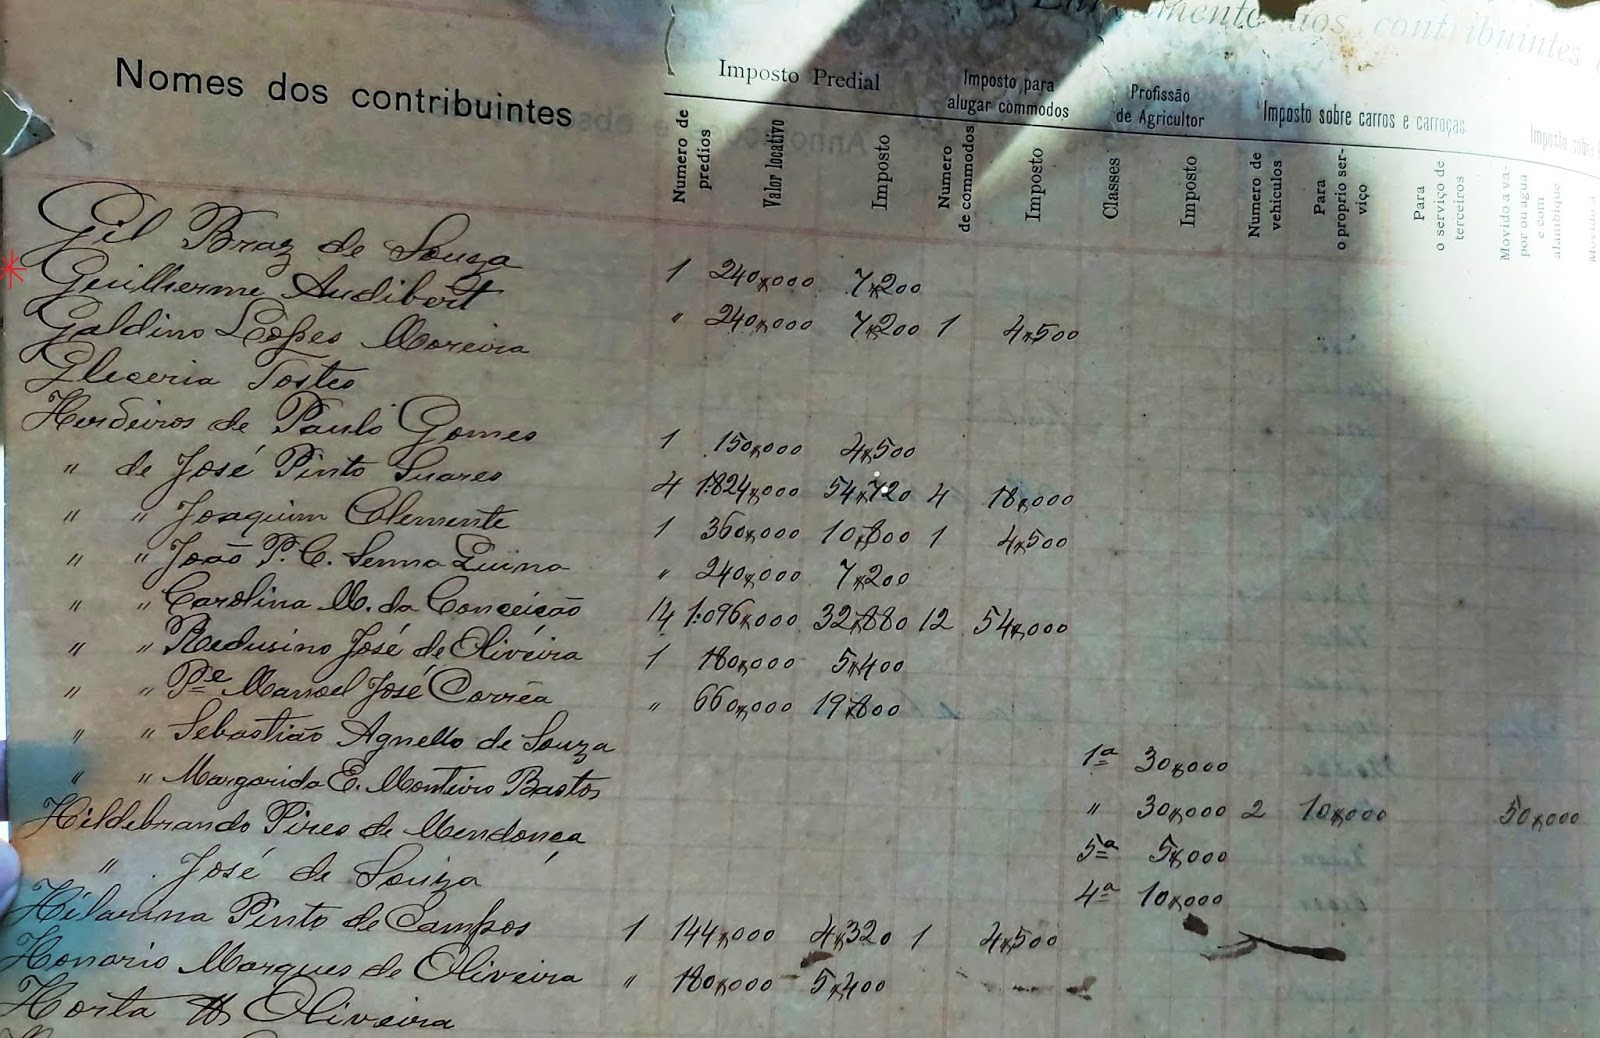 dos contribuintes
Nomes dos contribuintes
Imposto Predial
Imposto para alugar commodos
Profissão de Agricultor
Imposto sobre carros e carroças
Imposto sobre
Numero de predios
Valor locativo
Imposto
Numero de commodos
Imposto
Classes
Imposto
Numero de vehiculos
Para o proprio serviço
Para o serviço de terceiros
Movido a vapor ou agua e com alambique
Movido a
Gil Braz de Souza
Guilherme Audibert 1 240,000 7,200
Galdino Lopes Moreira " 240,000 7,200 1 4,500
Gleceria Tostes
Herdeiros de Paulo Gomes 1 150,000 4,500
" de José Pinto Soares 4 1:824,000 54,720 4 18,000
" " Joaquim Clemente 1 360,000 10,800 1 4,500
" " João P. C. Senna " 240,000 7,200
" " Carolina M. da Conceição 14 1:096,000 32,880 12 54,000
" " Redusino José de Oliveira 1 180,000 5,400
" " Pe Manoel José Corrêa " 660,000 19,800
" " Sebastião Agnello de Souza 1ª 30,000
" " Margarida E. Monteiro Bastos " 30,000 2 10,000 50,000
Hildebrando Pires de Mendonça 5ª 5,000
" José de Souza 4ª 10,000
Hilarina Pinto de Campos 1 144,000 4,320 1 4,500
Honorio Marques de Oliveira " 180,000 5,400
Horta Oliveira